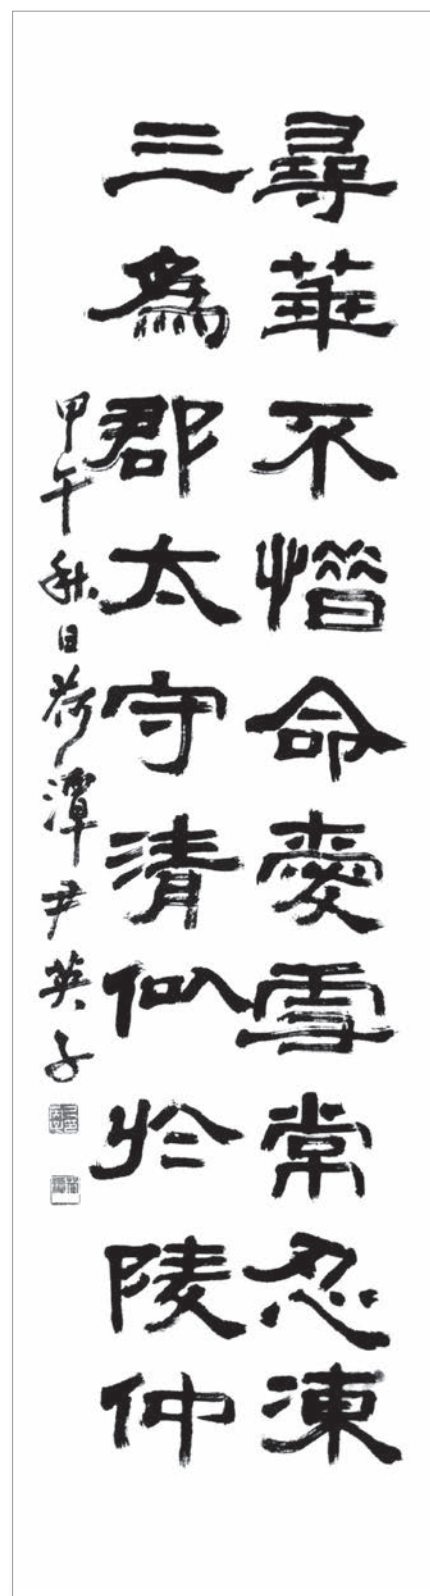 尋華不惜命愛雪常忍凍
三為郡太守清似於陵仲
甲午秋日荷潭尹英子